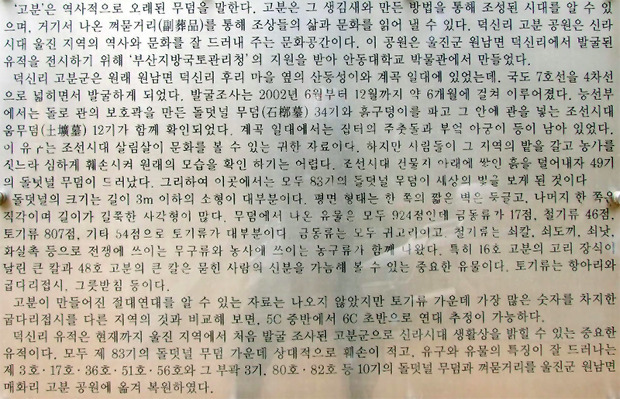 '고분'은 역사적으로 오래된 무덤을 말한다. 고분은 그 생김새와 만든 방법을 통해 조성된 시대를 알 수 있
으며, 거기서 나온 껴묻거리(副葬品)를 통해 조상들의 삶과 문화를 읽어 낼 수 있다. 덕신리 고분 공원은 신라
시대 울진 지역의 역사와 문화를 잘 드러내 주는 문화공간이다. 이 공원은 울진군 원남면 덕신리에서 발굴된
유적을 전시하기 위해 '부산지방국토관리청'의 지원을 받아 안동대학교 박물관에서 만들었다.
덕신리 고분군은 원래 원남면 덕신리 후리 마을 옆의 산등성이와 계곡 일대에 있었는데, 국도 7호선을 4차선
으로 넓히면서 발굴하게 되었다. 발굴조사는 2002년 6월부터 12월까지 약 6개월에 걸쳐 이루어졌다. 능선부
에서는 돌로 관의 보호곽을 만든 돌덧널 무덤(石槨墓) 34기와 흙구덩이를 파고 그 안에 관을 넣는 조선시대
움무덤(土壙墓) 12기가 함께 확인되었다. 계곡 일대에서는 집터의 주춧돌과 부엌 아궁이 등이 남아 있었다.
이 유구는 조선시대 살림살이 문화를 볼 수 있는 귀한 자료이다. 하지만 사람들이 그 지역의 밭을 갈고 농가를
짓느라 심하게 훼손시켜 원래의 모습을 확인 하기는 어렵다. 조선시대 건물지 아래에 쌓인 흙을 덜어내자 49기
의 돌덧널 무덤이 드러났다. 그리하여 이곳에서는 모두 83기의 돌덧널 무덤이 세상의 빛을 보게 된 것이다
돌덧널의 크기는 길이 3m 이하의 소형이 대부분이다. 평면 형태는 한 쪽의 짧은 벽은 둥글고, 나머지 한 쪽은
직각이며 길이가 길쭉한 사각형이 많다. 무덤에서 나온 유물은 모두 924점인데 금동류가 17점, 철기류 46점,
토기류 807점, 기타 54점으로 토기류가 대부분이다. 금동류는 모두 귀고리이고, 철기류는 쇠칼, 쇠도끼, 쇠낫,
화살촉 등으로 전쟁에 쓰이는 무구류와 농사에 쓰이는 농구류가 함께 나왔다. 특히 16호 고분의 고리 장식이
달린 큰 칼과 48호 고분의 큰 칼은 묻힌 사람의 신분을 가늠해 볼 수 있는 중요한 유물이다. 토기류는 항아리와
굽다리접시, 그릇받침 등이다.
고분이 만들어진 절대연대를 알 수 있는 자료는 나오지 않았지만 토기류 가운데 가장 많은 숫자를 차지한
굽다리접시를 다른 지역의 것과 비교해 보면, 5C 중반에서 6C 초반으로 연대 추정이 가능하다.
덕신리 유적은 현재까지 울진 지역에서 처음 발굴 조사된 고분군으로 신라시대 생활상을 밝힐 수 있는 중요한
유적이다. 모두 제 83기의 돌덧널 무덤 가운데 상대적으로 훼손이 적고, 유구와 유물의 특징이 잘 드러나는
제 3호·17호·36호·51호·56호와 그 부곽 3기, 80호·82호 등 10기의 돌덧널 무덤과 껴묻거리를 울진군 원남면
매화리 고분 공원에 옮겨 복원하였다.